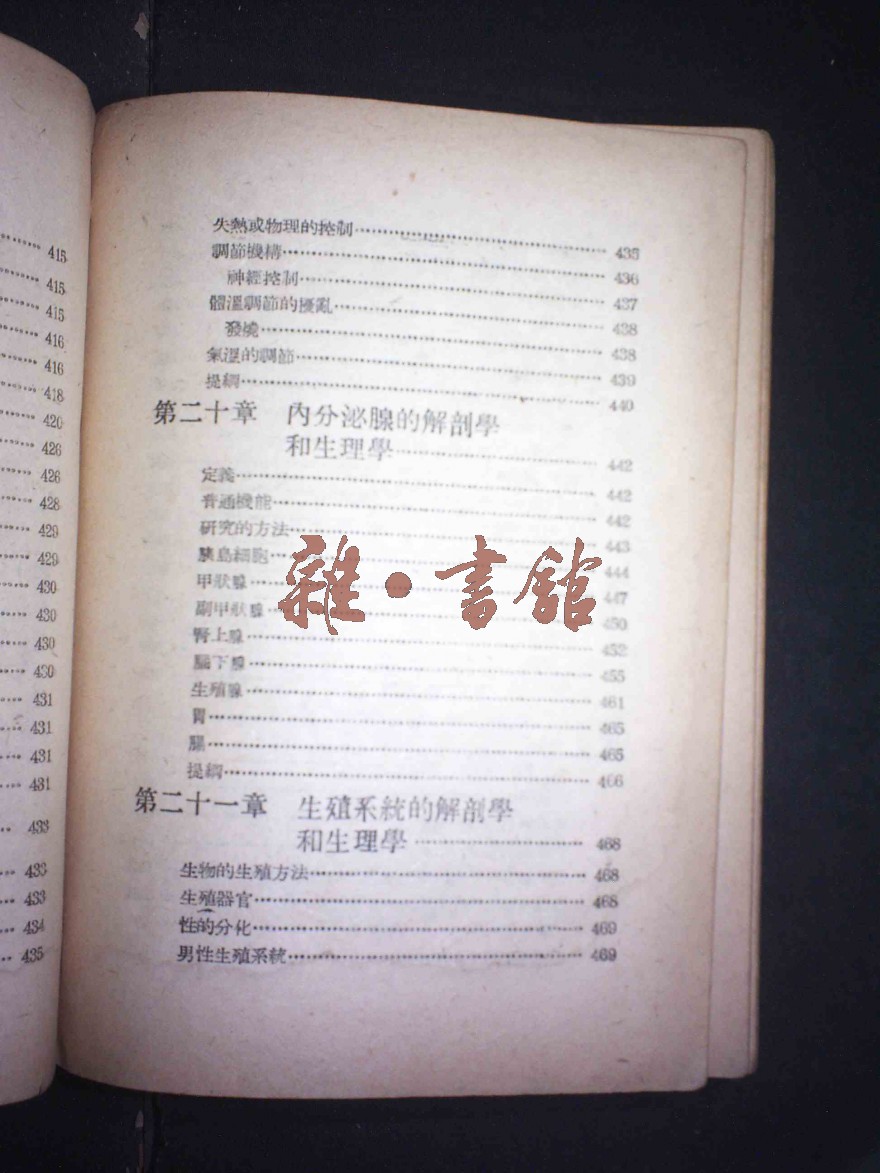 415
415
415
416
416
418
420
426
426
428
429
429
430
430
430
430
431
431
431
431
433
433
433
434
435
失熱或物理的控制 435
調節機構 436
神經控制 437
體溫調節的擾亂 438
發燒 438
氣溫的調節 439
提綱 440
第二十章 內分泌腺的解剖學
和生理學 442
定義 442
普通機能 442
研究的方法 443
胰島細胞 444
甲狀腺 447
副甲狀腺 450
腎上腺 452
腦下腺 455
生殖腺 461
胃 465
腸 465
提綱 466
第二十一章 生殖系統的解剖學
和生理學 468
生物的生殖方法 468
生殖器官 468
性的分化 469
男性生殖系統 469
雜·書館